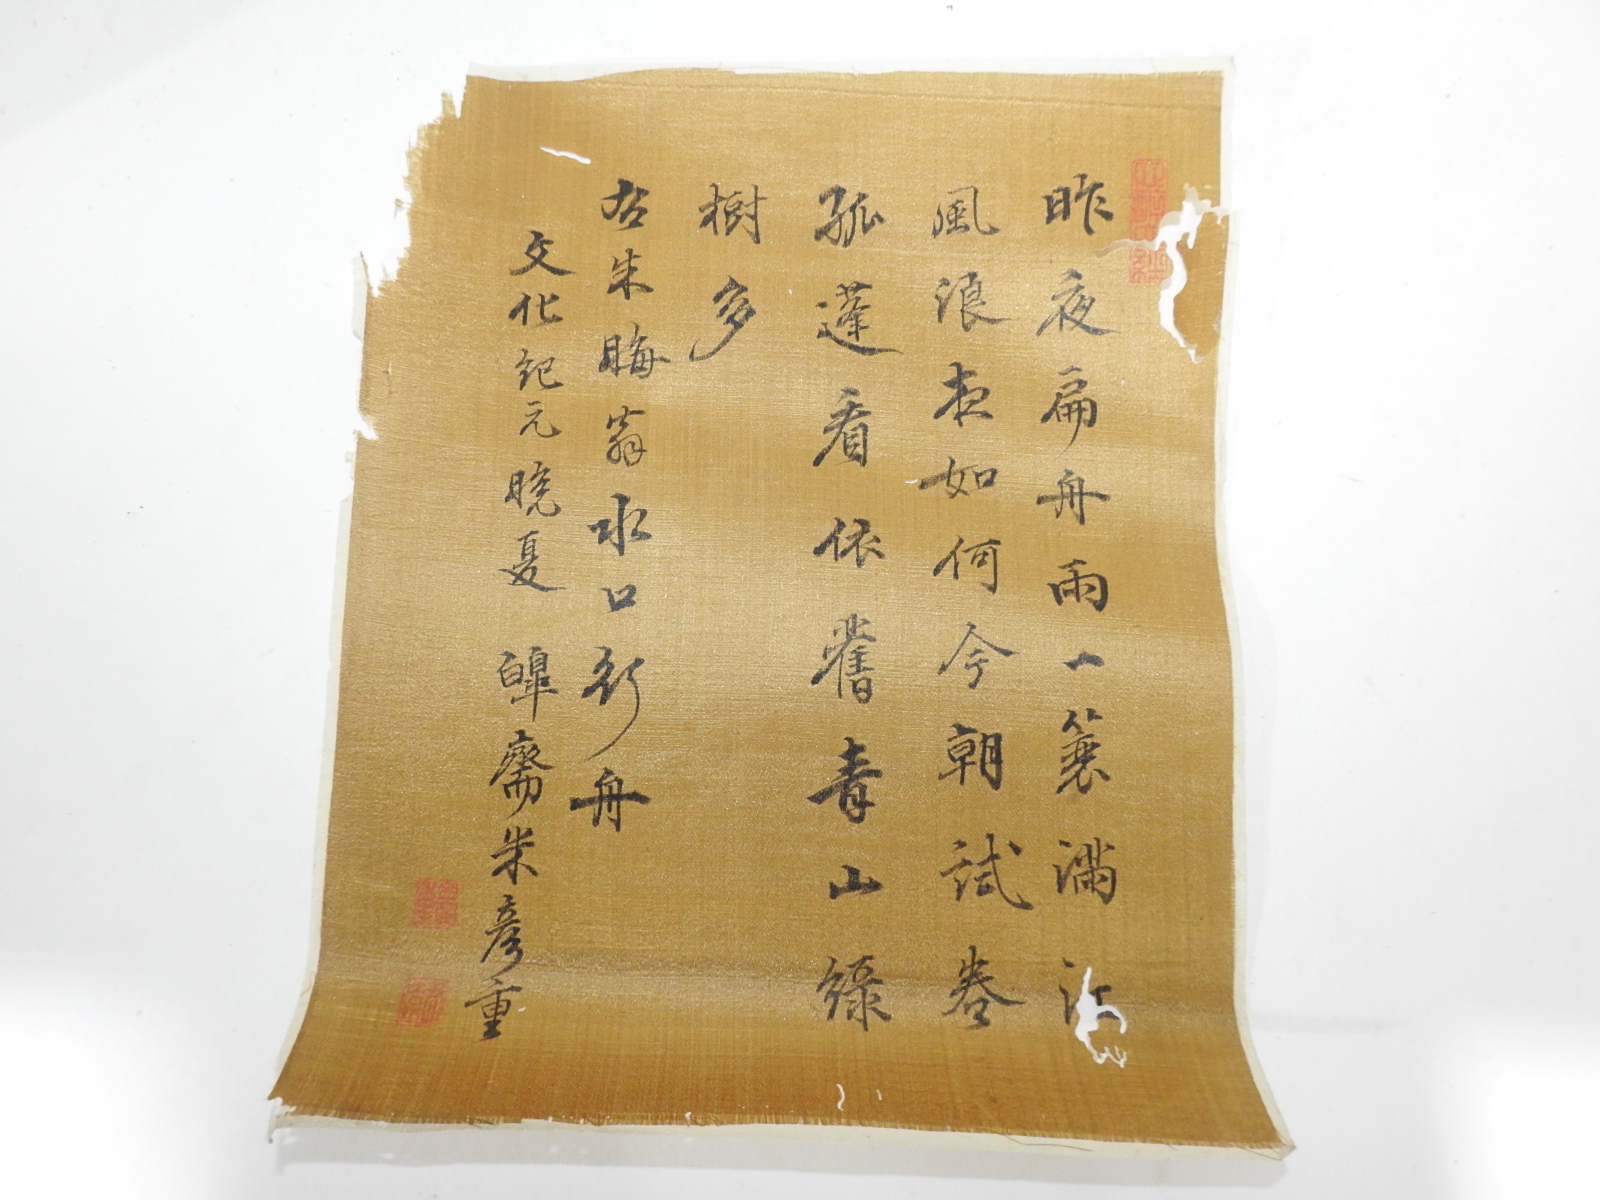 昨夜扁舟雨一蓑滿江
風浪夜如何今朝試卷
孤蓬看依舊青山綠
樹多
右朱晦翁水口行舟
文化紀元晚夏 皥齋米彦重